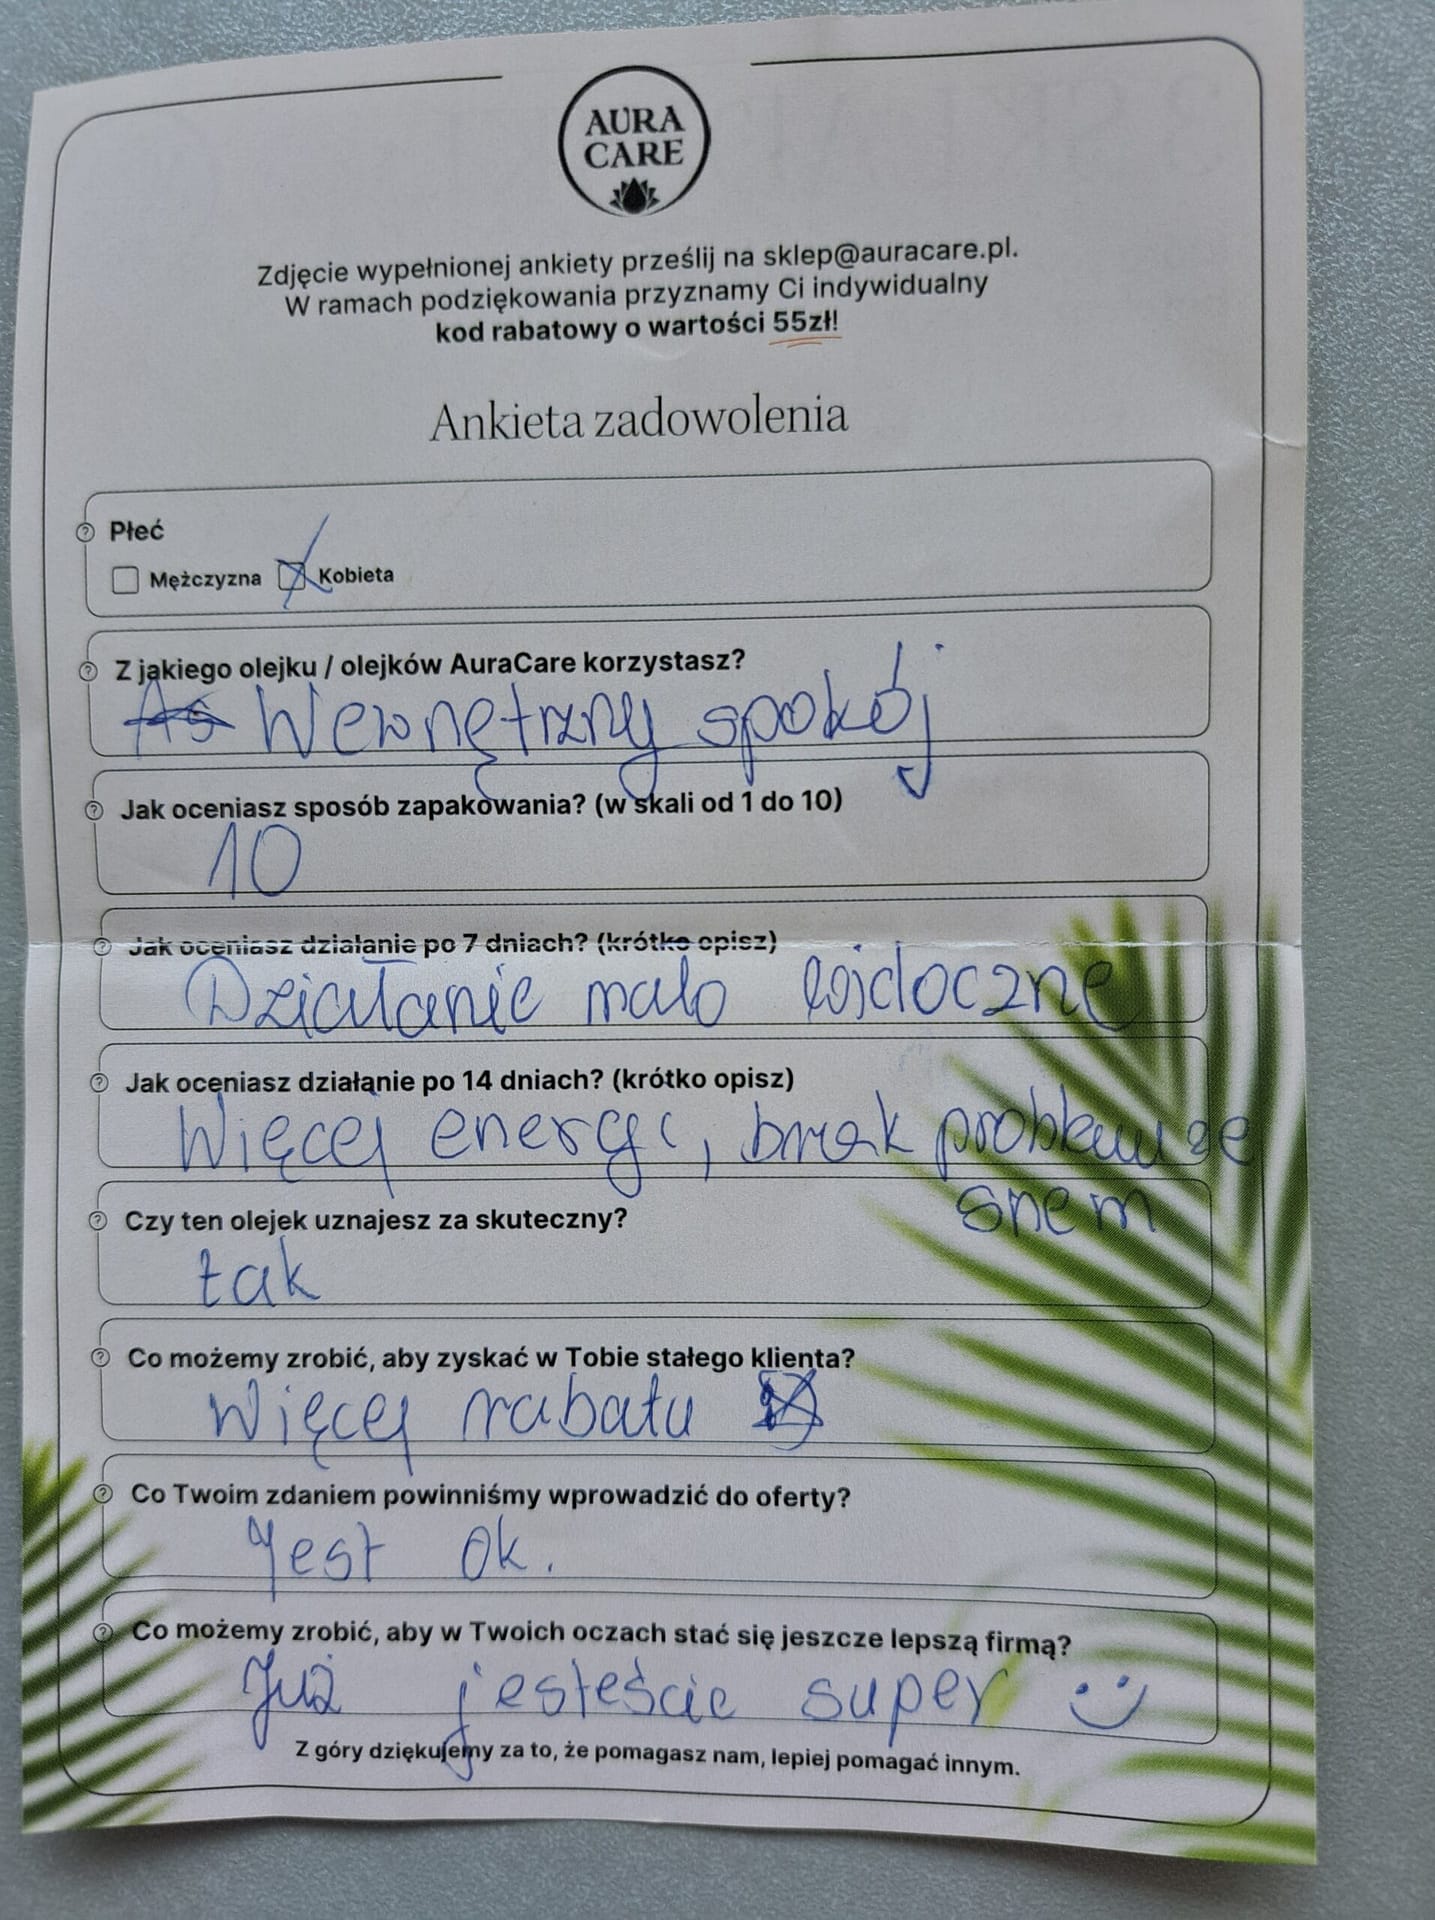 AURA
CARE
Zdjęcie wypełnionej ankiety prześlij na sklep@auracare.pl.
W ramach podziękowania przyznamy Ci indywidualny
kod rabatowy o wartości 55zł!
Ankieta zadowolenia
Płeć
Mężczyzna Kobieta
Z jakiego olejku / olejków AuraCare korzystasz?
Wewnętrzny spokój
Jak oceniasz sposób zapakowania? (w skali od 1 do 10)
10
Jak oceniasz działanie po 7 dniach? (krótko opisz)
Działanie mało widoczne
Jak oceniasz działanie po 14 dniach? (krótko opisz)
Więcej energi, brak problemu ze
snem
Czy ten olejek uznajesz za skuteczny?
tak
Co możemy zrobić, aby zyskać w Tobie stałego klienta?
Więcej rabatu
Co Twoim zdaniem powinniśmy wprowadzić do oferty?
Jest ok.
Co możemy zrobić, aby w Twoich oczach stać się jeszcze lepszą firmą?
Już jesteście super
Z góry dziękujemy za to, że pomagasz nam, lepiej pomagać innym.